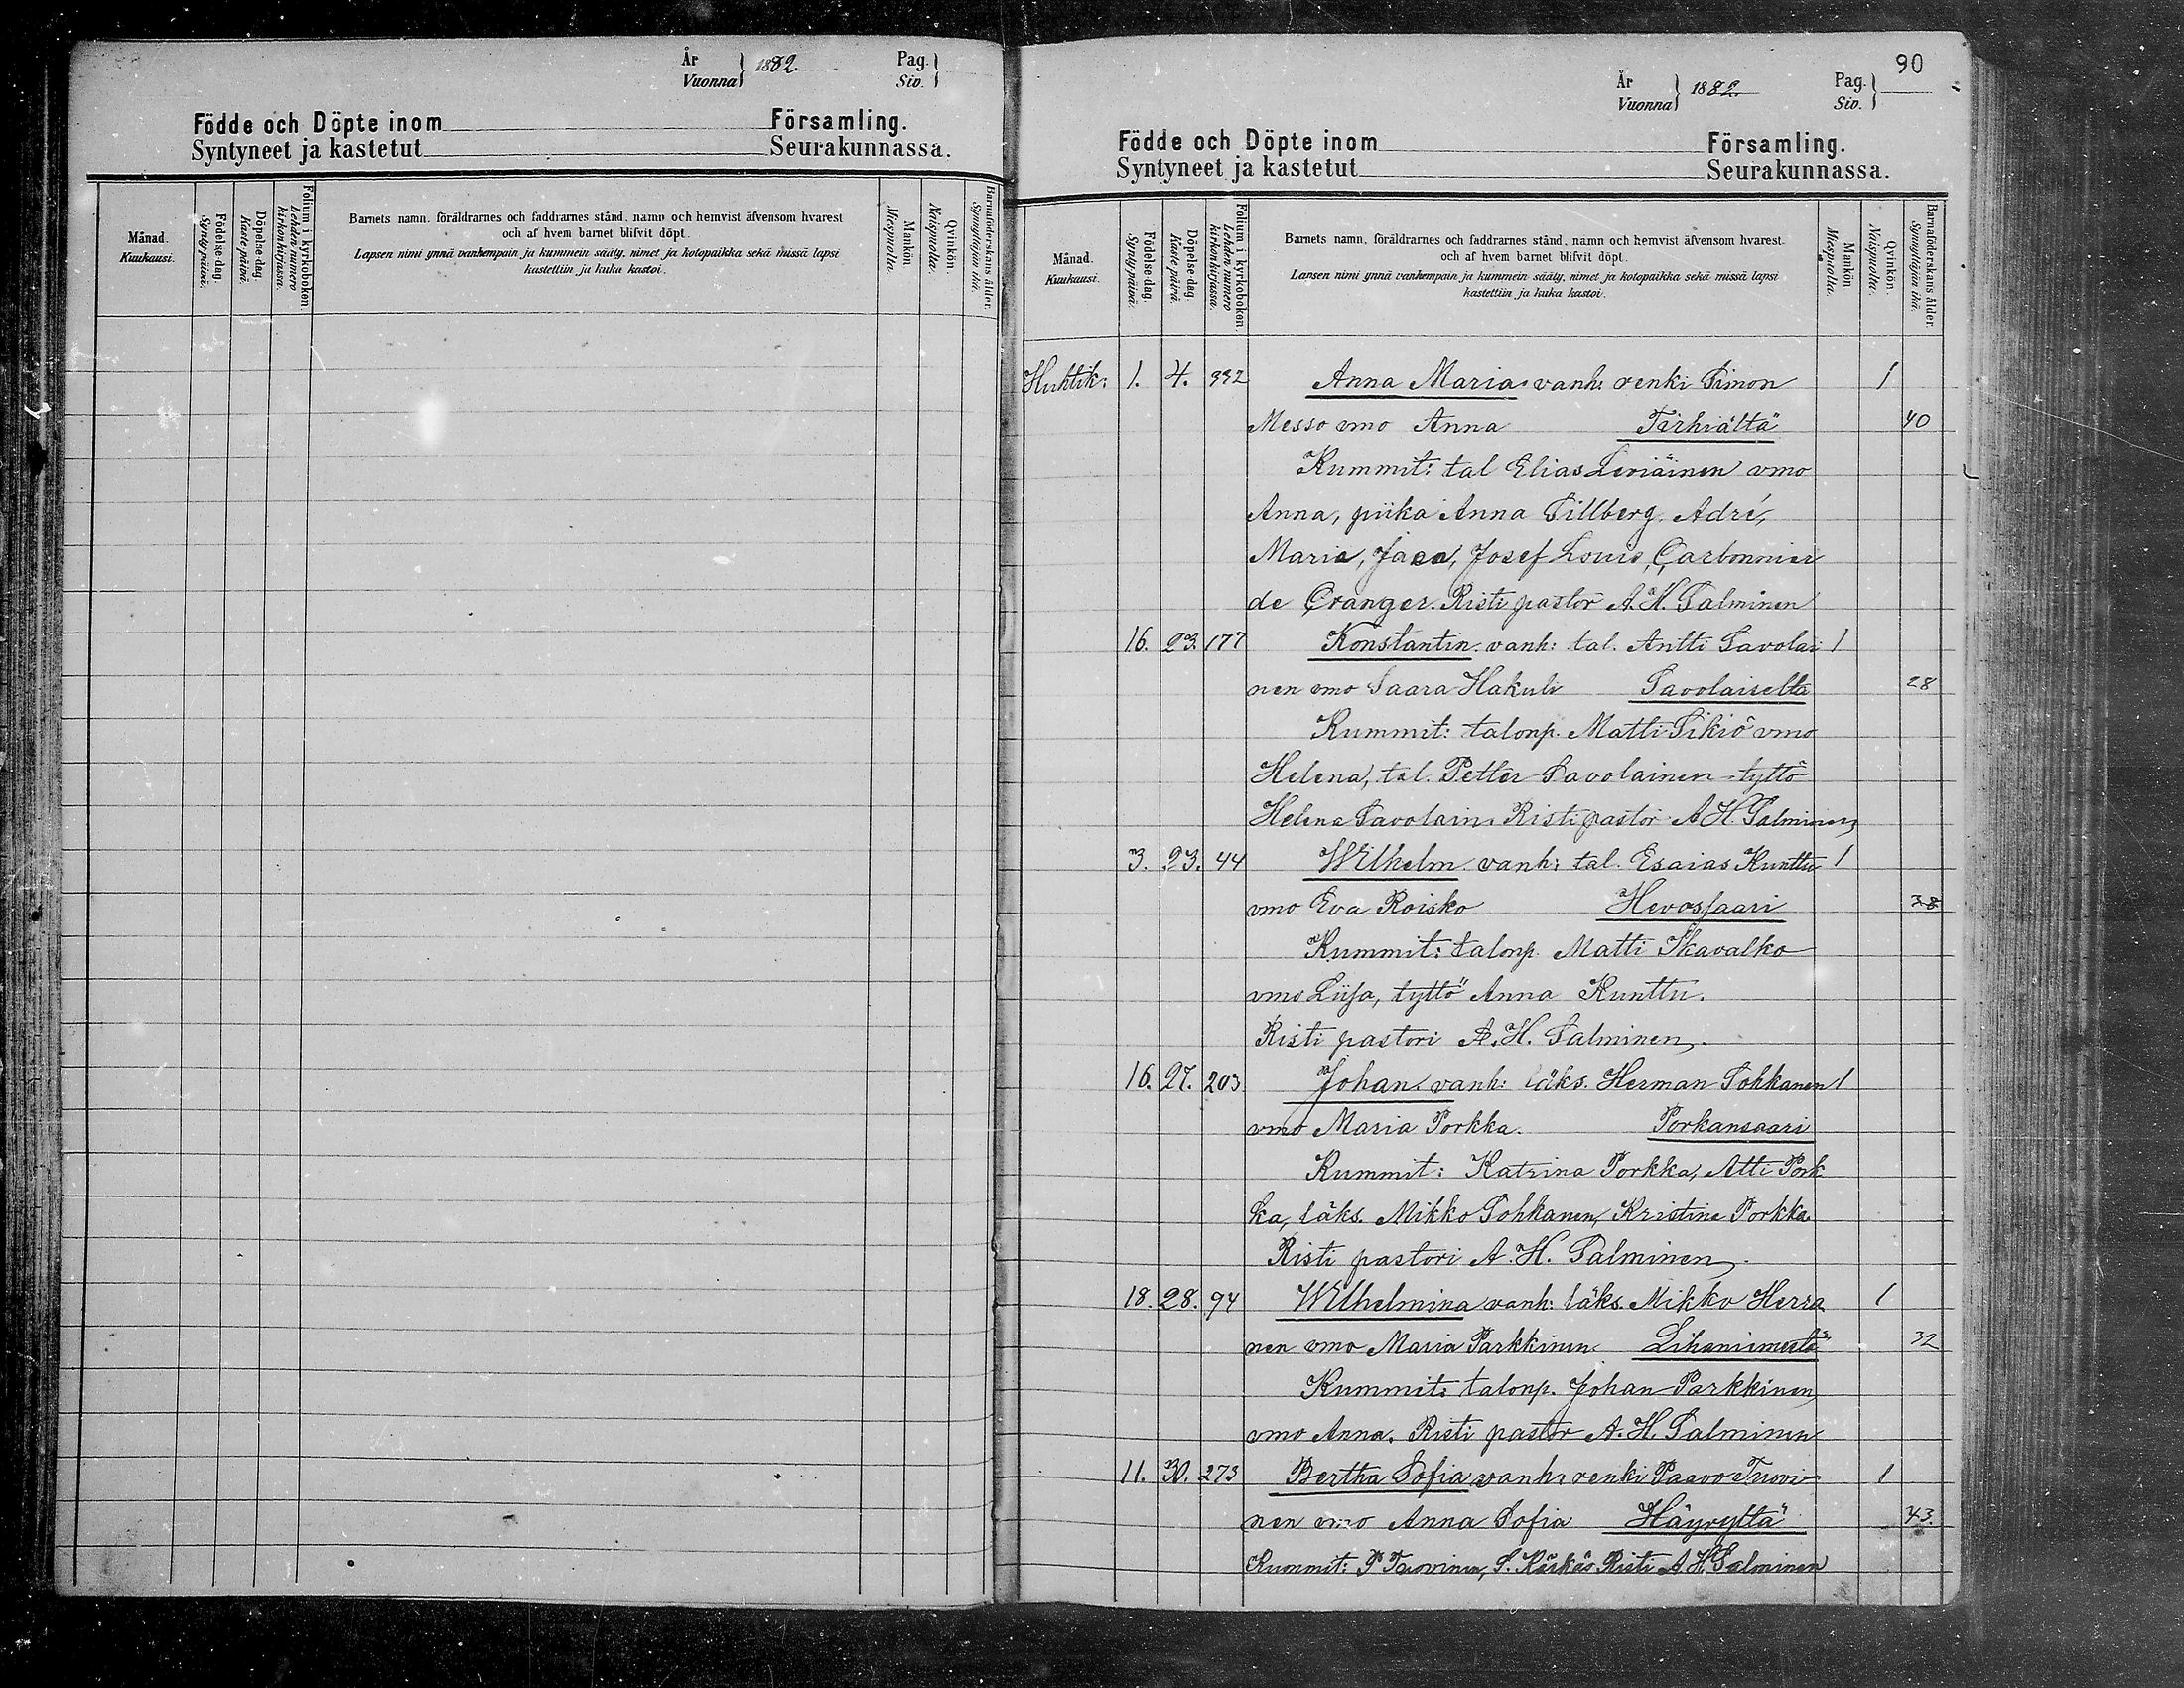 År
Vuonna } 1882. Pag.
Siv. }
Födde och Döpte inom Församling.
Syntyneet ja kastetut Seurakunnassa.
Månad.
Kuukausi.
Födelse-dag.
Synty päivä.
Döpelse-dag.
Kaste päivä.
Folium i kyrkoboken.
Lehden numero
kirkonkirjassa.
Barnets namn, föräldrarnes och faddrarnes stånd, namn och hemvist äfvensom hvarest
och af hvem barnet blifvit döpt.
Lapsen nimi ynnä vanhempain ja kummein sääty, nimet ja kotopaikka sekä missä lapsi
kastettiin ja kuka kastoi.
Mankön.
Miespuolta.
Qvinkön.
Naispuolta.
Barnaföderskans ålder.
Synnyttäjän ikä.
90
År
Vuonna } 1882. Pag.
Siv. }
Födde och Döpte inom Församling.
Syntyneet ja kastetut Seurakunnassa.
Månad.
Kuukausi.
Födelse-dag.
Synty päivä.
Döpelse-dag.
Kaste päivä.
Folium i kyrkoboken.
Lehden numero
kirkonkirjassa.
Barnets namn, föräldrarnes och faddrarnes stånd, namn och hemvist äfvensom hvarest.
och af hvem barnet blifvit döpt.
Lapsen nimi ynnä vanhempain ja kummein sääty, nimet ja kotopaikka sekä missä lapsi
kastettiin ja kuka kastoi.
Mankön
Miespuolta.
Qvinkön.
Naispuolta.
Barnaföderskans ålder.
Synnyttäjän ikä.
Huhtik: 1. 4. 332 Anna Maria vanh: renki Simon 1
Messo vmo Anna Tirhiältä 40
Kummit: tal Elias Leviäinen vmo
Anna, piika Anna Sillberg. Adré,
Maria, Jaea, Josef Louis, Carbonnier
de Cranger. Risti pastor A. H. Salminen
16. 23. 177 Konstantin. vanh: tal. Antti Savolai 1
nen vmo Saara Hakuli Savolaiselta 28
Kummit: talonp. Matti Sikiö vmo
Helena, tal. Petter Savolainen tyttö
Helena Savolain. Risti pastor A H Salminen
3. 23. 44 Wilhelm. vanh: tal. Esaias Kunttu 1
vmo Eva Roisko Hevossaari 38
Kummit: talonp. Matti Skavalko
vmo Liisa, tyttö Anna Kunttu.
Risti pastori A. H. Salminen.
16. 27. 203 Johan. vanh: läks. Herman Pohkanen 1
vmo Maria Porkka. Porkansaari
Kummit: Katrina Porkka, Atti Pork
ka, läks. Mikko Pohkanen, Kristine Porkka
Risti pastori A. H. Salminen.
18. 28. 94 Wilhelmina vanh: läks. Mikko Herra 1
nen vmo Maria Parkkinen Lihaniemestä 32
Kummit: talonp. Johan Parkkinen
vmo Anna. Risti pastor A. H. Salminen
11. 30. 273 Bertha Sofia vanh: renki Paavo Tuovi- 1
nen vmo Anna Sofia Häyryltä 43.
Kummit: P Tuovinen, S. Käskäs Risti A H Salminen